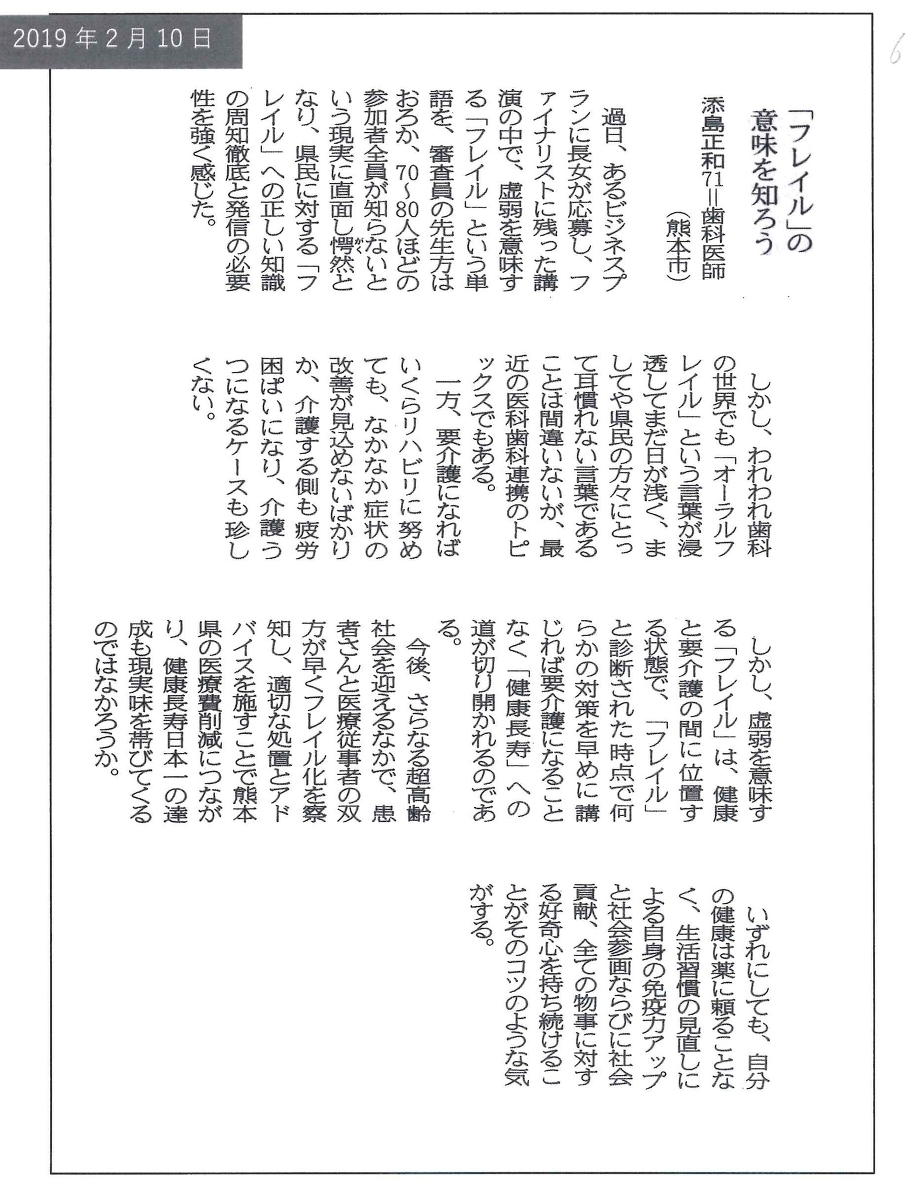 2019年2月10日
6
「フレイル」の
意味を知ろう
添島正和71＝歯科医師
（熊本市）
過日、あるビジネスプ
ランに長女が応募し、フ
ァイナリストに残った講
演の中で、虚弱を意味す
る「フレイル」という単
語を、審査員の先生方は
おろか、70～80人ほどの
参加者全員が知らないと
いう現実に直面し愕然と
がく
なり、県民に対する「フ
レイル」への正しい知識
の周知徹底と発信の必要
性を強く感じた。
しかし、われわれ歯科
の世界でも「オーラルフ
レイル」という言葉が浸
透してまだ日が浅く、ま
してや県民の方々にとっ
て耳慣れない言葉である
ことは間違いないが、最
近の医科歯科連携のトピ
ックスでもある。
一方、要介護になれば
いくらリハビリに努め
ても、なかなか症状の
改善が見込めないばかり
か、介護する側も疲労
困ぱいになり、介護う
つになるケースも珍し
くない。
しかし、虚弱を意味す
る「フレイル」は、健康
と要介護の間に位置す
る状態で、「フレイル」
と診断された時点で何
らかの対策を早めに講
じれば要介護になること
なく「健康長寿」への
道が切り開かれるのであ
る。
今後、さらなる超高齢
社会を迎えるなかで、患
者さんと医療従事者の双
方が早くフレイル化を察
知し、適切な処置とアド
バイスを施すことで熊本
県の医療費削減につなが
り、健康長寿日本一の達
成も現実味を帯びてくる
のではなかろうか。
いずれにしても、自分
の健康は薬に頼ることな
く、生活習慣の見直しに
よる自身の免疫力アップ
と社会参画ならびに社会
貢献、全ての物事に対す
る好奇心を持ち続けるこ
とがそのコツのような気
がする。